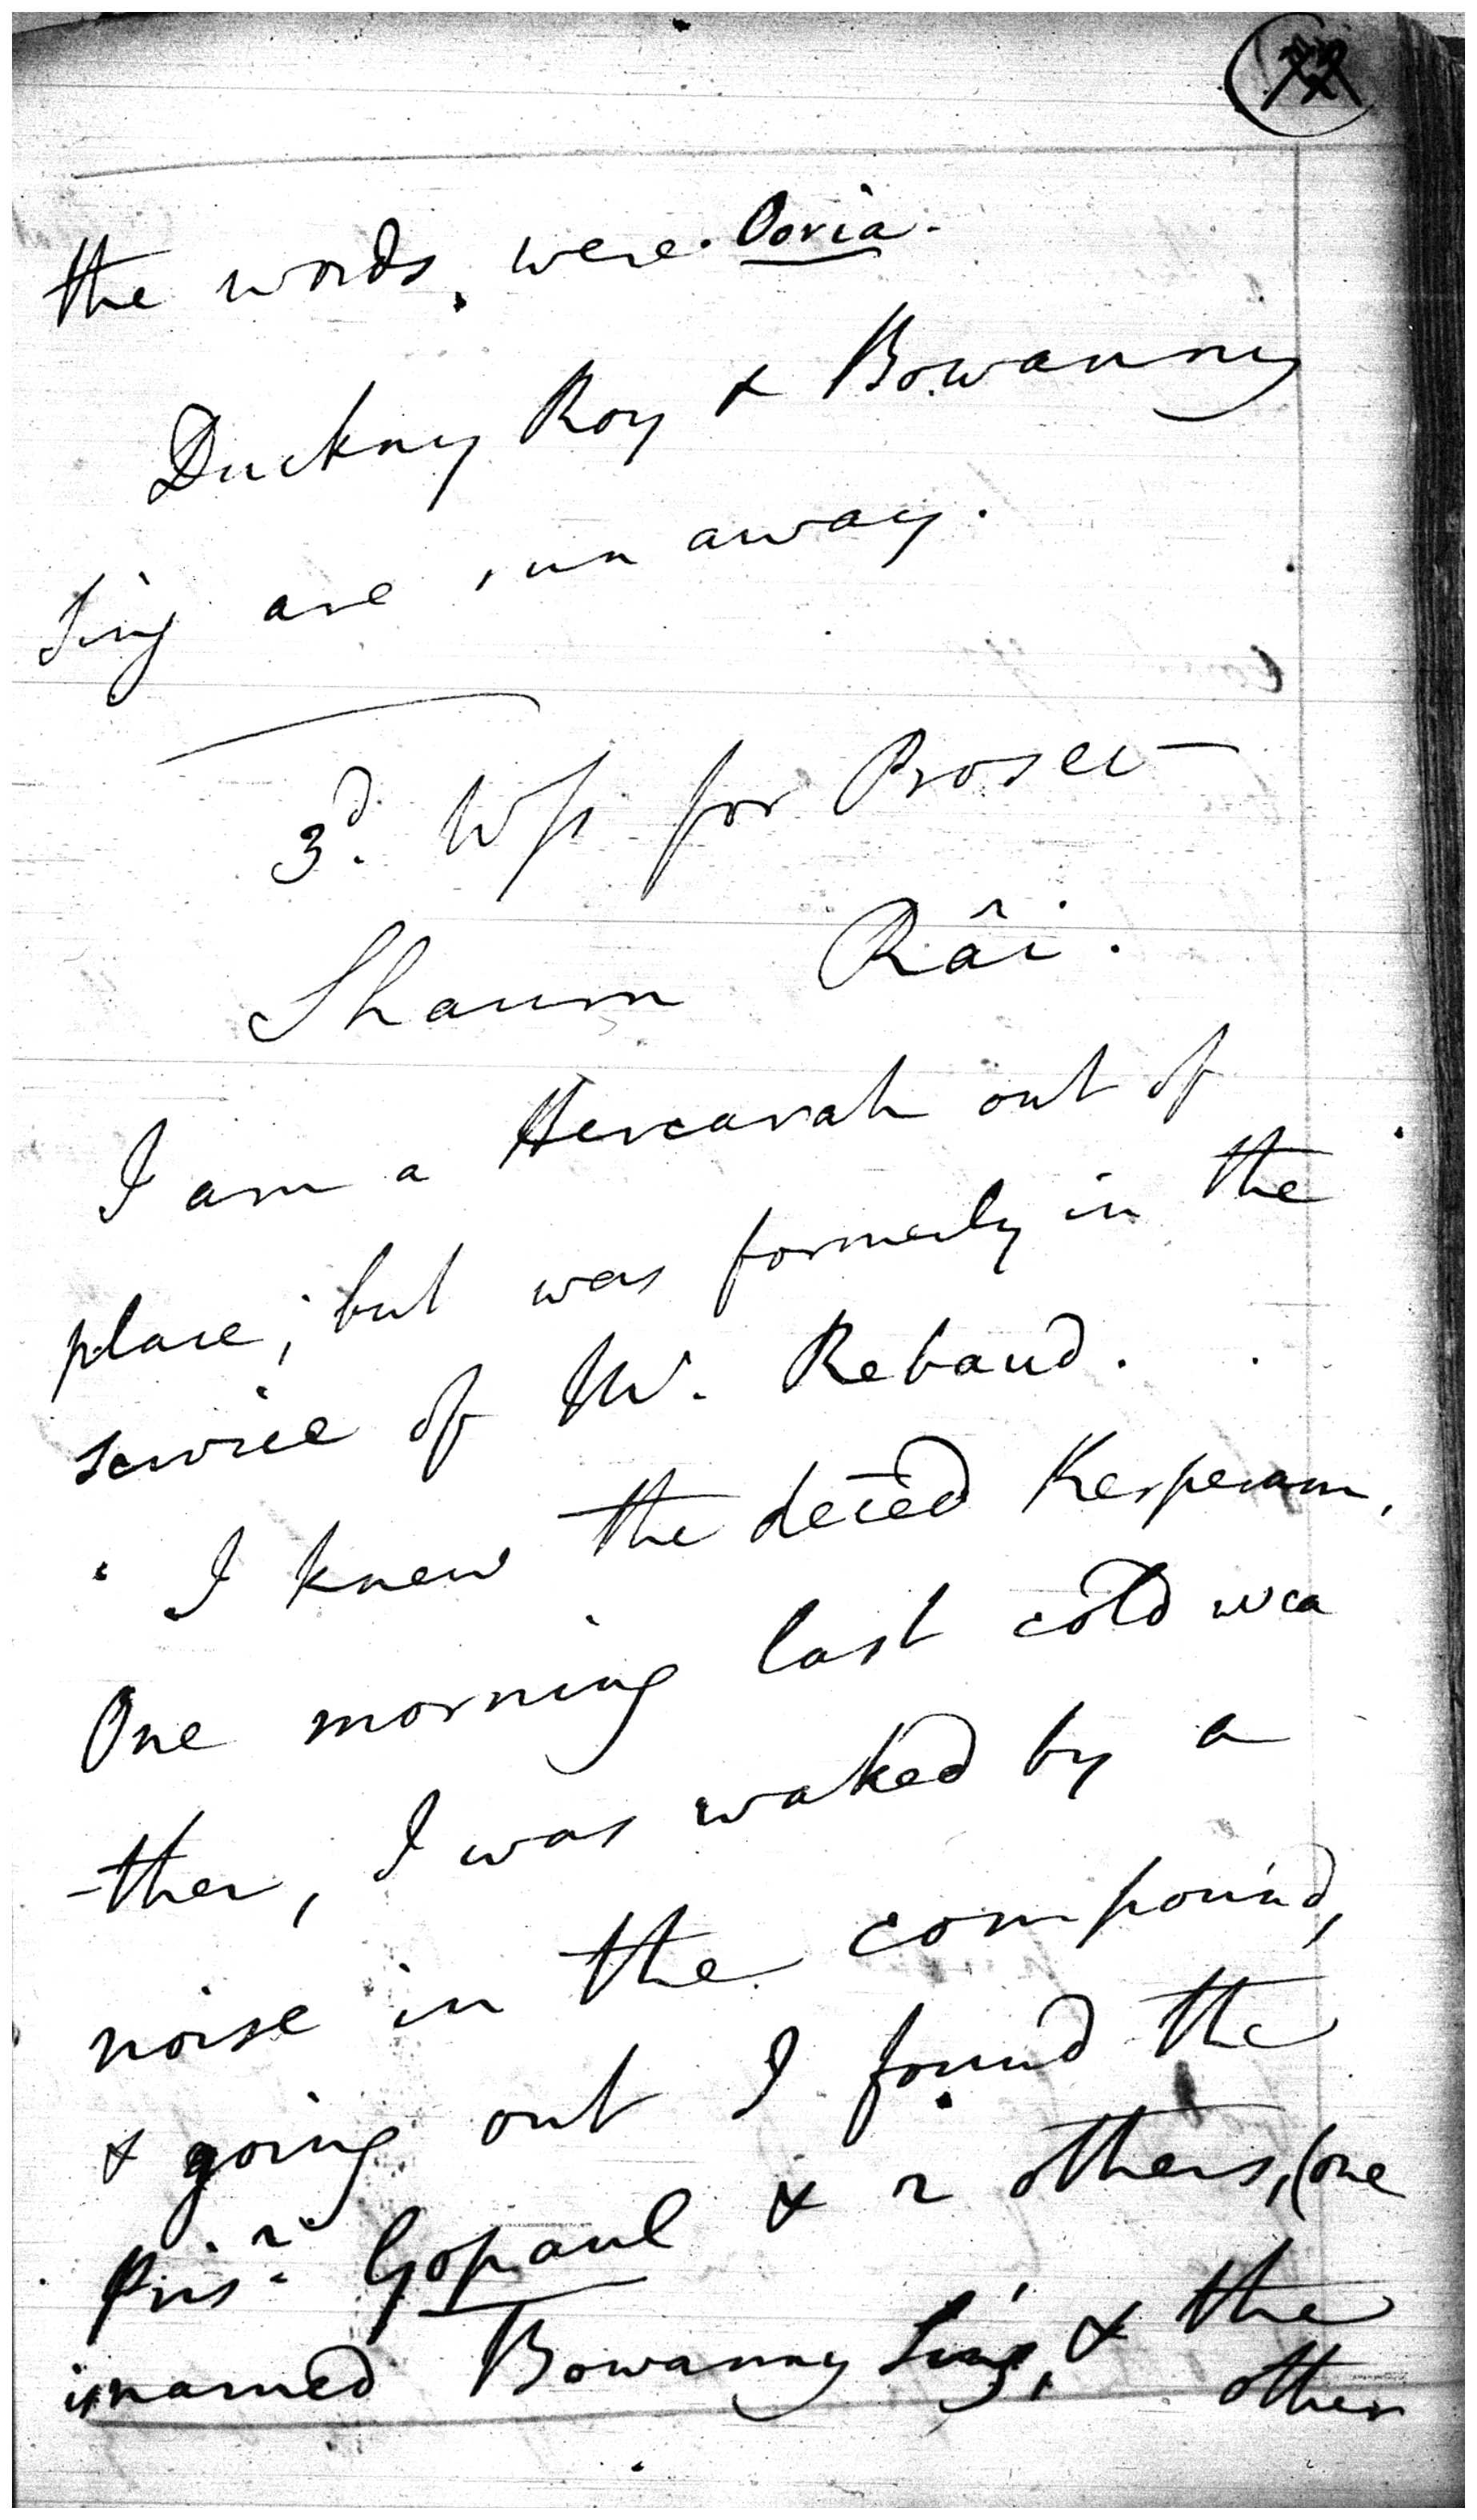 the words were Ooria.
Duckny Roy & Bowanny
Sing are run away.
3d. Wss for Prosec
Shaum Râi.
I am a Hercarah out of
place; but was formerly in the
service of Mr. Rebaud.
I knew the deced Kesperam,
One morning last cold wea
-ther, I was waked by a
noise in the compound,
& going out I found the
Prisr. Gopaul & 2 others, (one
is named Bowanny Sing, & the
other